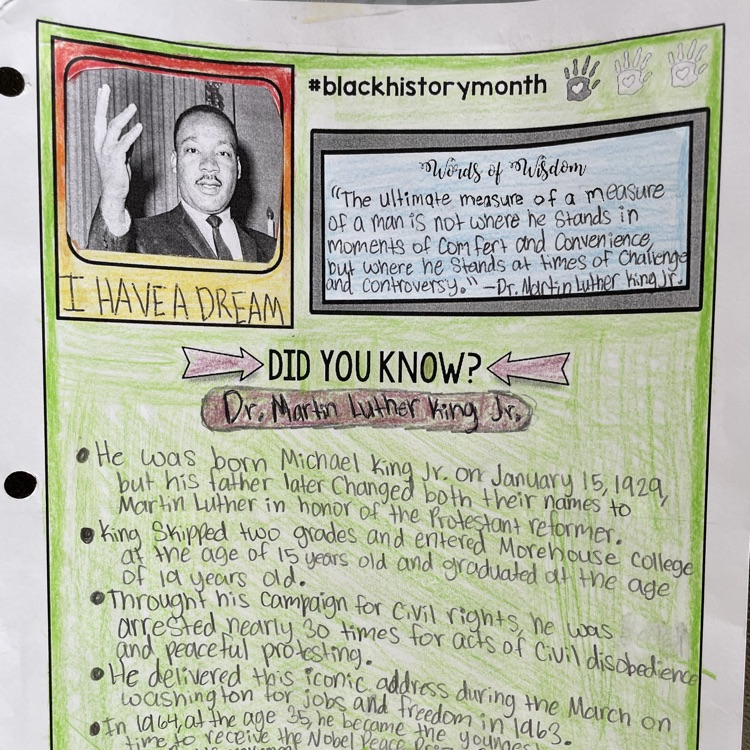 #blackhistorymonth
Words of Wisdom
"The ultimate measure of a measure
of a man is not where he stands in
moments of Comfert and Convenience,
but where he Stands at times of Challenge
and controversy." -Dr. Martin Luther King Jr.
I HAVE A DREAM
DID YOU KNOW?
Dr. Martin Luther King Jr.
• He was born Michael King Jr. on January 15, 1929,
but his father later Changed both their names to
Martin Luther in honor of the Protestant reformer.
• King Skipped two grades and entered Morehouse College
at the age of 15 years old and graduated at the age
of 19 years old.
• Throught his Campaign for Civil rights, he was
arrested nearly 30 times for acts of Civil disobedience
and peaceful protesting.
• He delivered this iconic address during the March on
washington for jobs and freedom in 1963.
• In 1964, at the age 35, he became the youngest
time to receive the Nobel Peace